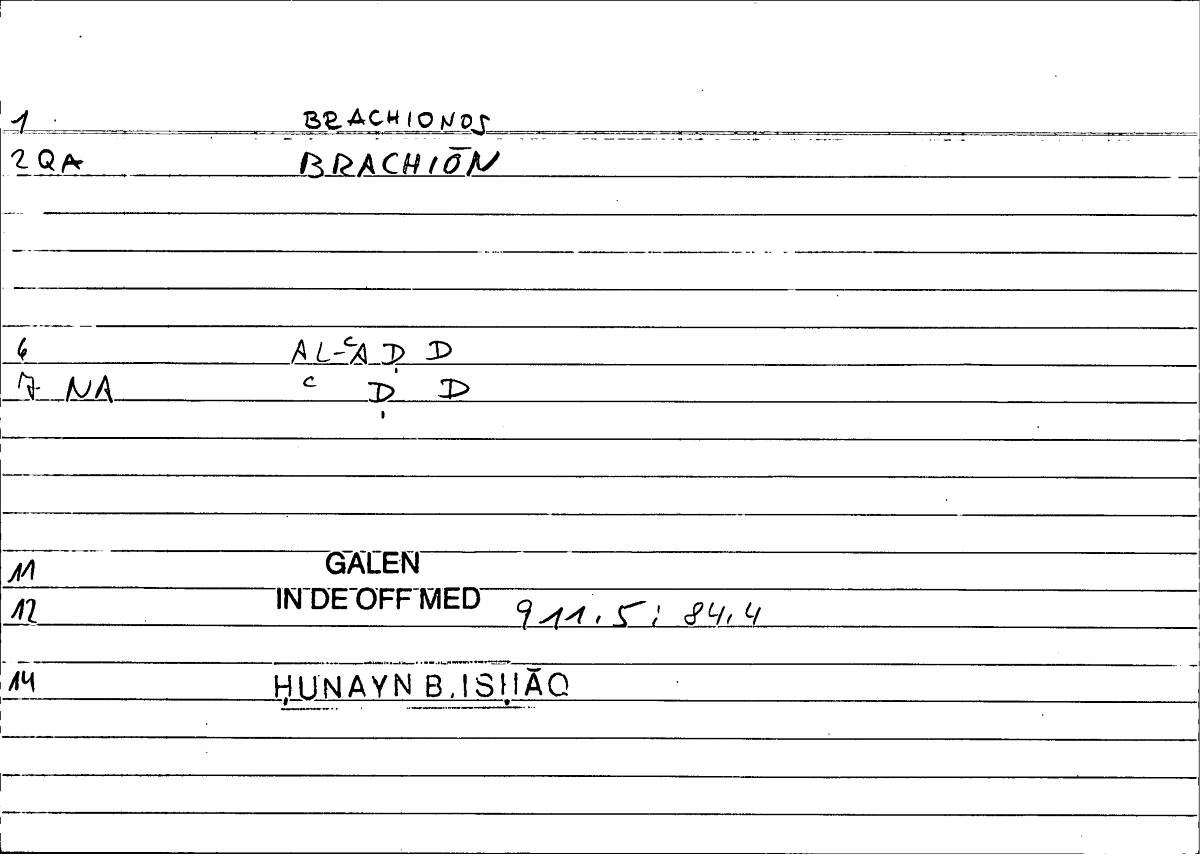 1 BRACHIONOS
2 QA BRACHIŌN
6 AL-ʿAḌ D
7 NA ʿ Ḍ D
11 GALEN
12 IN DE OFF MED 911.5; 84.4
14 ḤUNAYN B. ISḤĀQ